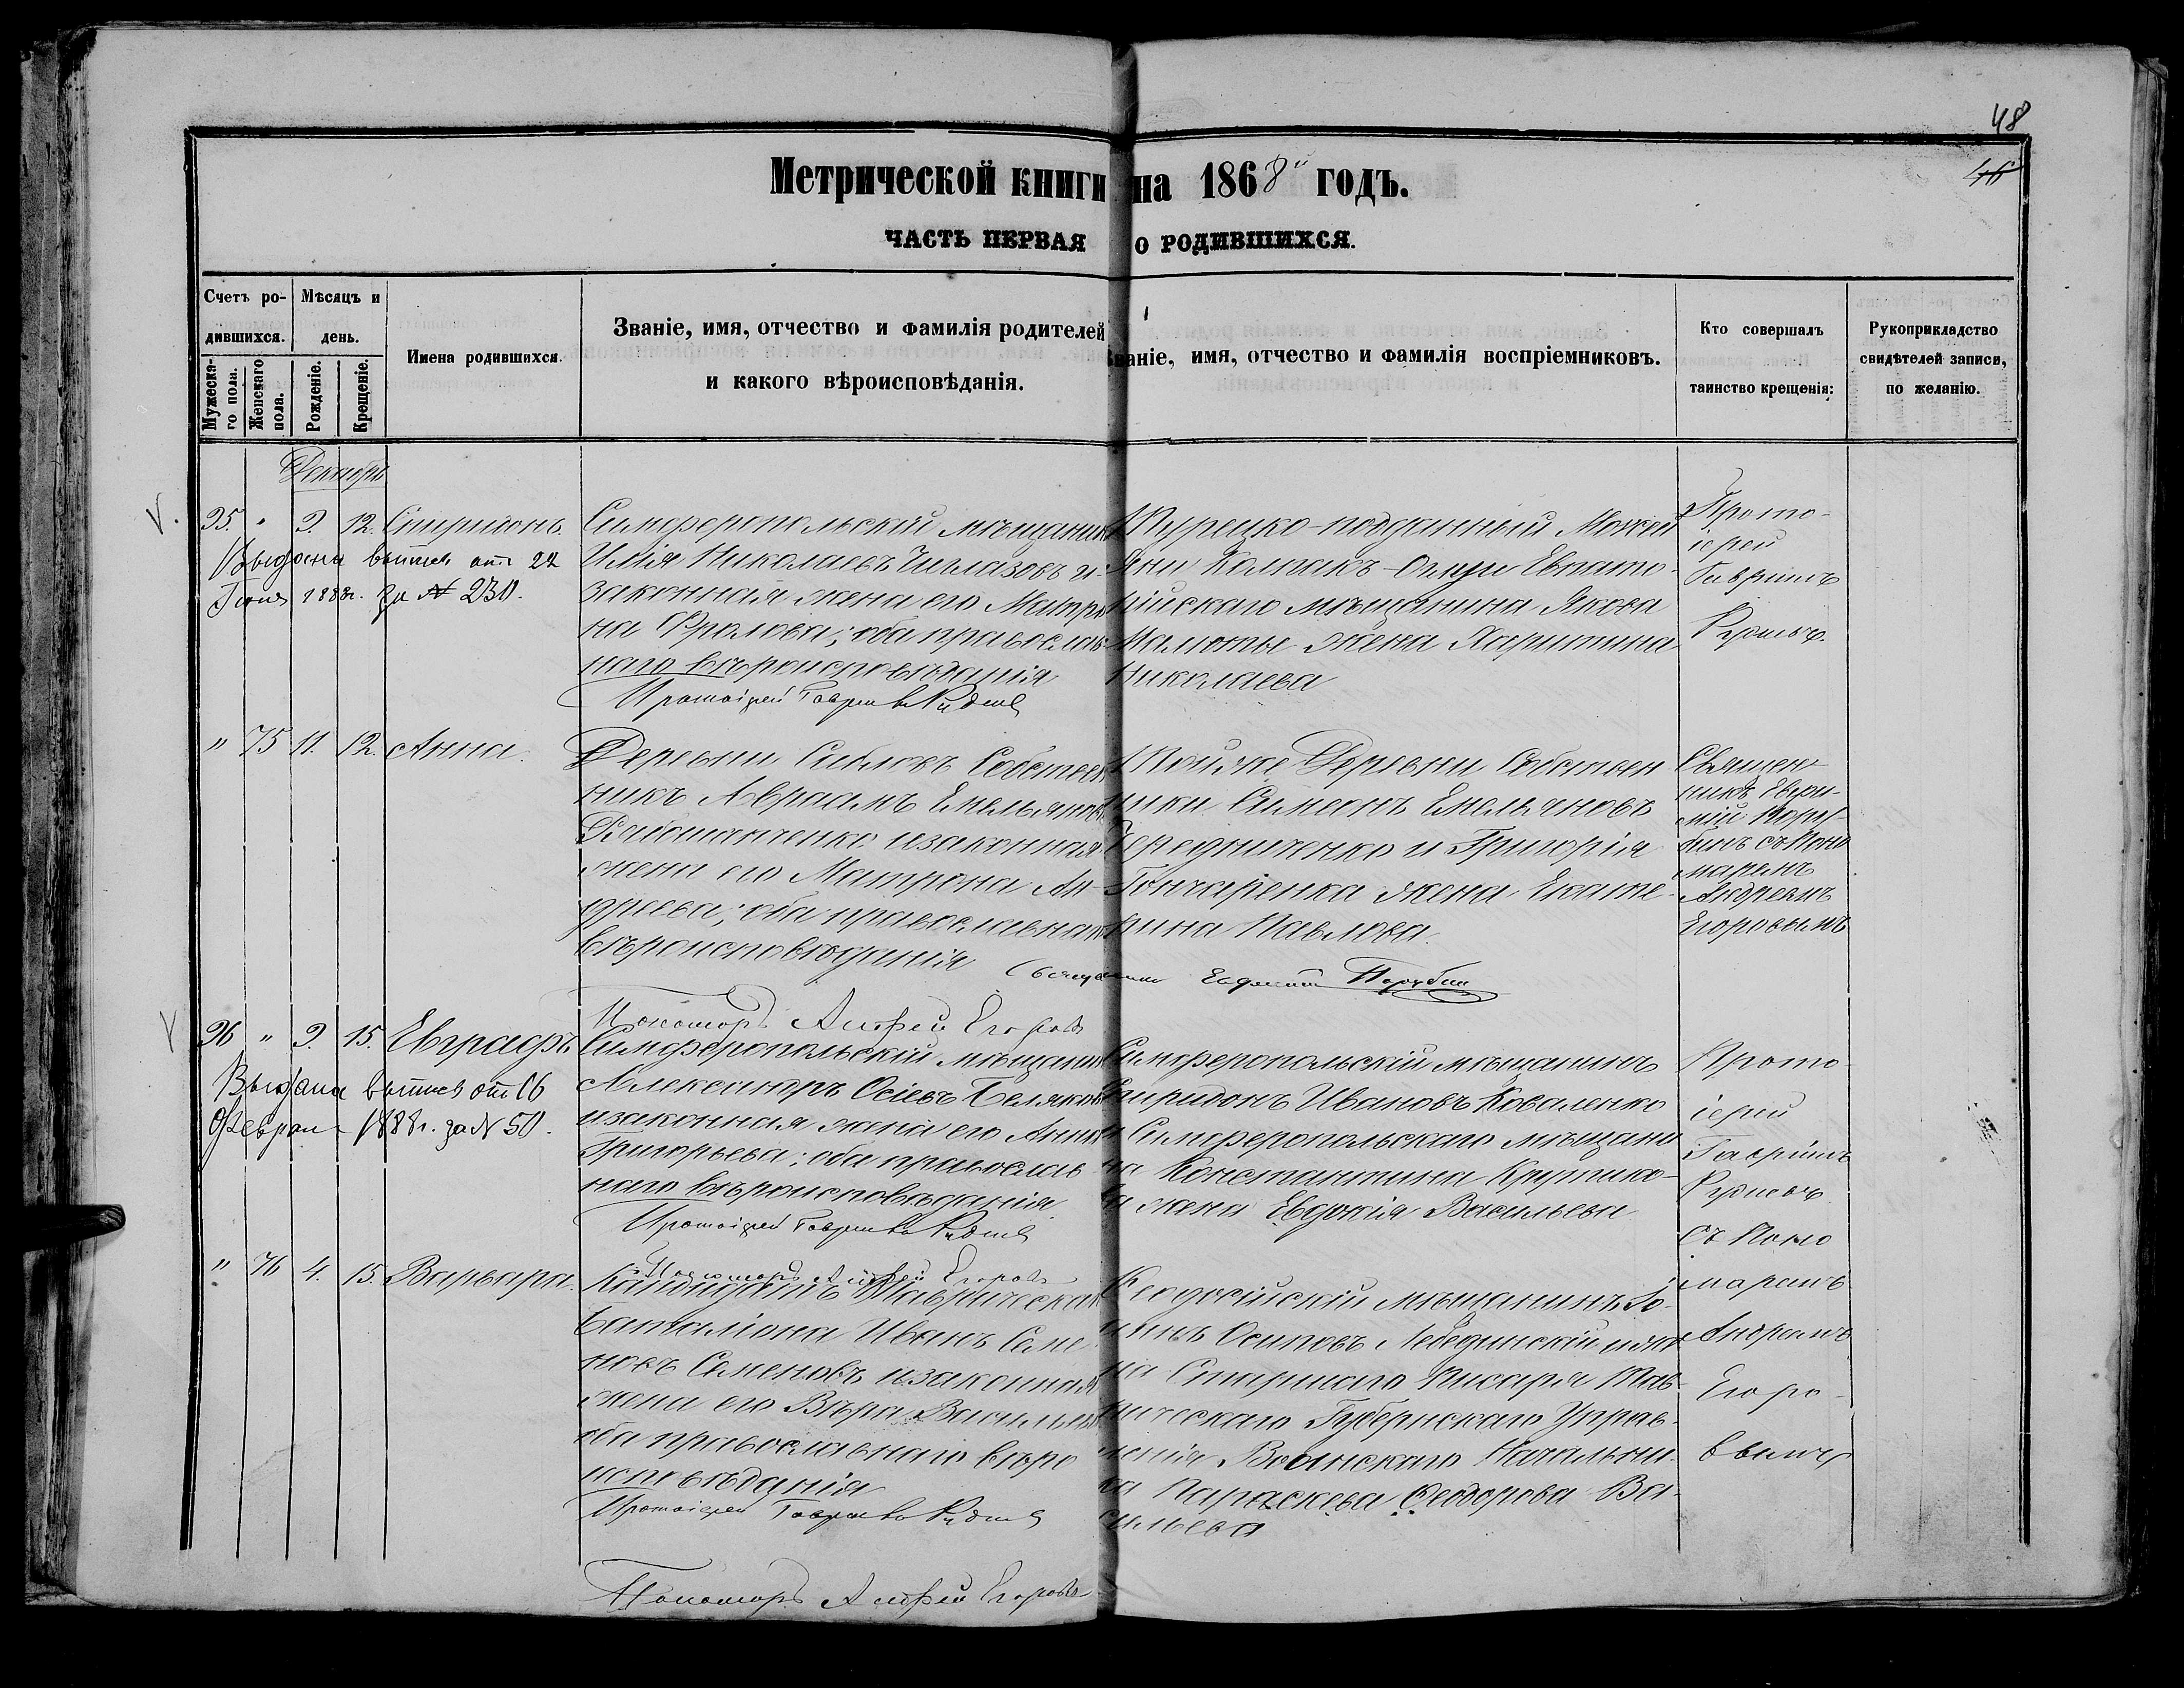 48
46
Метрической книги на 1868й годъ.
ЧАСТЬ ПЕРВАЯ О РОДИВШИХСЯ.
Счетъ ро-
дившихся.
Мужеска-
го пола.
Женскаго
пола.
Мѣсяцъ и
день.
Рожденіе.
Крещеніе.
Имена родившихся.
Званіе, имя, отчество и фамилія родителей
и какого вѣроисповѣданія.
Званіе, имя, отчество и фамилія воспріемниковъ.
Кто совершалъ
таинство крещенія:
Рукоприкладство
свидѣтелей записи,
по желанію.
Декабрь
95. " 9. 12. Спиридонъ.
Выдана выпись отъ 22
Іюня 1888г. за № 230.
Симферопольскій мѣщанинъ
Илія Николаевъ и
законная жена его Матро
на Фролова; оба православ-
наго вѣроисповѣданія
Протоіерей Гавріилъ
Турецко-подданный
Яни Колпакъ-Оглу и Евпато-
рійскаго мѣщанина Якова
Малюты жена Харитина
Николаева
Прото-
іерей
Гавріилъ
" 75 11. 12. Анна.
Деревни Сабловъ Собствен
никъ Авраамъ Емельяновъ
и законная
жена его Матрона Ан-
дреева; оба православнаго
вѣроисповѣданія
Той же Деревни Собствен
ники Симеонъ Емельяновъ
Чередниченко и Григорія
Гончаренка жена Екате-
рина Павлова.
Священ-
никъ Евфи-
мій
съ Поно
маремъ
Андреемъ
Егоровымъ
Священникъ Евфимій
Пономарь Андрей Егоровъ
96 " 9. 15. Евграфъ
Выдана выпись отъ 16
Февраля 1888г. за № 50.
Симферопольскій мѣщанинъ
Александръ Осіевъ Беляковъ
и законная жена его Анна
Григорьева; оба православ
наго вѣроисповѣданія
Протоіерей Гавріилъ
Пономарь Андрей Егоровъ
Симферопольскій мѣщанинъ
Спиридонъ Ивановъ Коваленко
и Симферопольскаго мѣщани
на Константина Крутико-
ва жена Евдокія Васильева
Прото
іерей
Гавріилъ
съ Поно
маремъ
Андреемъ
Егоро-
вымъ
" 76 4. 15. Варвара.
Кандидатъ Таврическаго
Баталіона Иванъ Семе
новъ Семеновъ и законная
жена его Вѣра Васильева
оба православнаго вѣро
исповѣданія
Протоіерей Гавріилъ
Пономарь Андрей Егоровъ
Феодосійскій мѣщанинъ Іо-
аннъ Осиповъ Лебединскій и же
на Старшаго Писаря Тав-
рическаго Губернскаго Управ-
ленія Воинскаго Начальни-
ка Параскева Феодорова Ва-
сильева